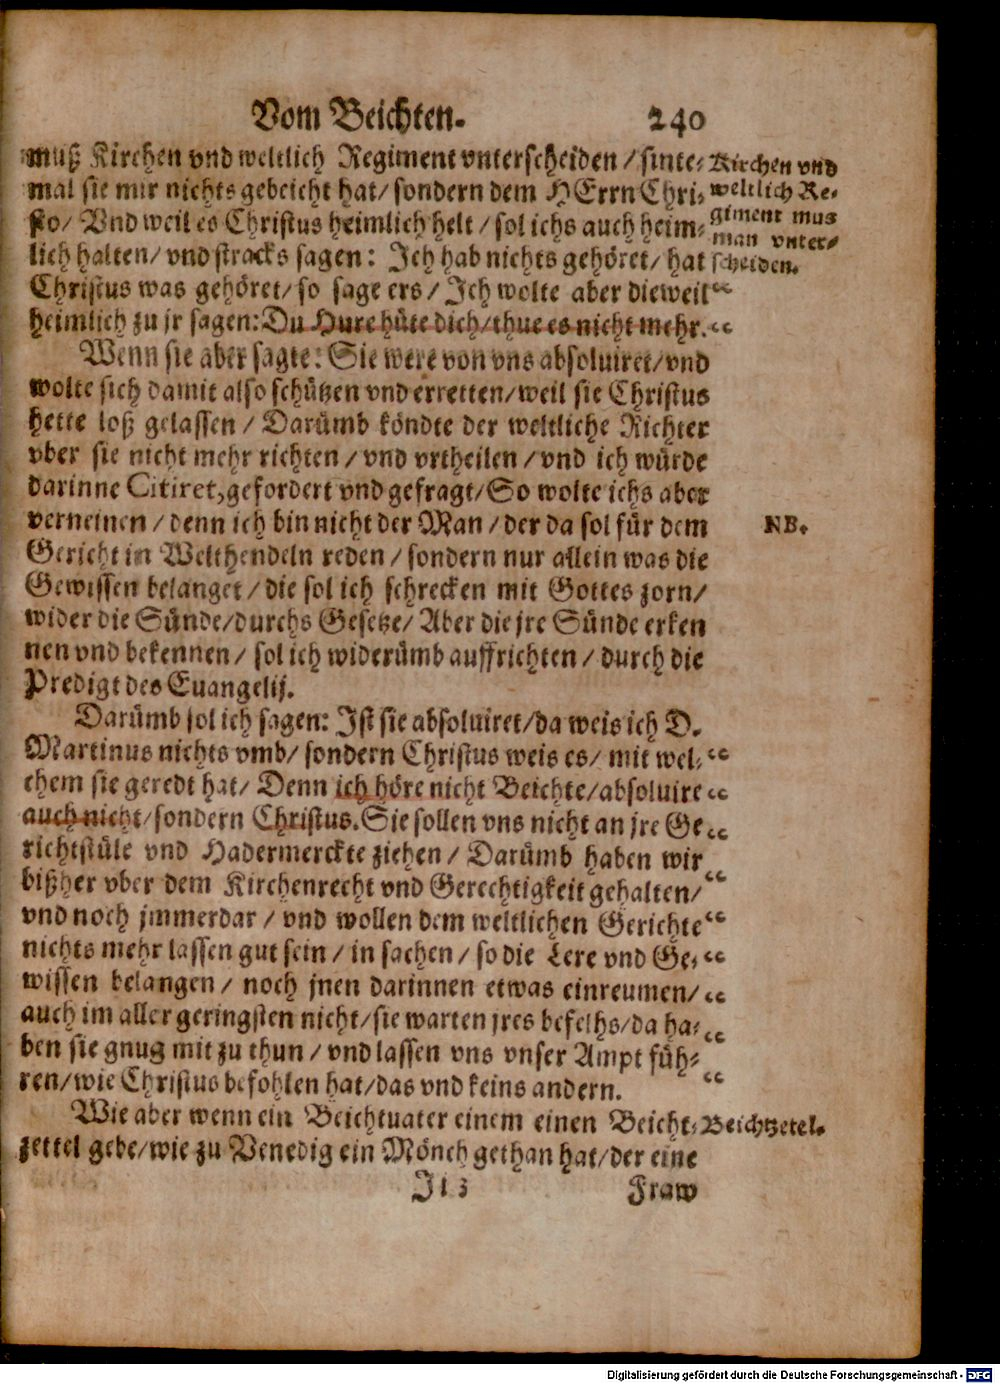 Vom Beichten. 240
muß Kirchen vnd weltlich Regiment vnterscheiden / sinte-
mal sie mir nichts gebeicht hat / sondern dem HErrn Chri-
sto / Vnd weil es Christus heimlich helt / sol ichs auch heim-
lich halten / vnd stracks sagen: Ich hab nichts gehöret / hat
Christus was gehöret / so sage ers / Ich wolte aber dieweil “
heimlich zu jr sagen: Du Hure hüte dich / thue es nicht mehr. “
Kirchen vnd
weltlich Re-
giment mus
man vnter-
scheiden.
Wenn sie aber sagte: Sie were von vns absoluiret / vnd
wolte sich damit also schützen vnd erretten / weil sie Christus
hette loß gelassen / Darümb köndte der weltliche Richter
vber sie nicht mehr richten / vnd vrtheilen / vnd ich würde
darinne Citiret, gefordert vnd gefragt / So wolte ichs aber
verneinen / denn ich bin nicht der Man / der da sol für dem
NB.
Gericht in Welthendeln reden / sondern nur allein was die
Gewissen belanget / die sol ich schrecken mit Gottes zorn /
wider die Sünde / durchs Gesetze / Aber die jre Sünde erken
nen vnd bekennen / sol ich widerümb auffrichten / durch die
Predigt des Euangelij.
Darümb sol ich sagen: Ist sie absoluiret / da weis ich D.
Martinus nichts vmb / sondern Christus weis es / mit wel- “
chem sie geredt hat / Denn ich höre nicht Beichte / absoluire “
auch nicht / sondern Christus. Sie sollen vns nicht an jre Ge “
richtstüle vnd Hadermerckte ziehen / Darümb haben wir
bißher vber dem Kirchenrecht vnd Gerechtigkeit gehalten / “
vnd noch jmmerdar / vnd wollen dem weltlichen Gerichte “
nichts mehr lassen gut sein / in sachen / so die Lere vnd Ge- “
wissen belangen / noch jnen darinnen etwas einreumen / “
auch im aller geringsten nicht / sie warten jres befelhs / da ha- “
ben sie gnug mit zu thun / vnd lassen vns vnser Ampt füh-
ren / wie Christus befohlen hat / das vnd keins andern. “
Wie aber wenn ein Beichtuater einem einen Beicht-
Beichtzetel.
zettel gebe / wie zu Venedig ein Mönch gethan hat / der eine
Fraw
Digitalisierung gefördert durch die Deutsche Forschungsgemeinschaft - DFG